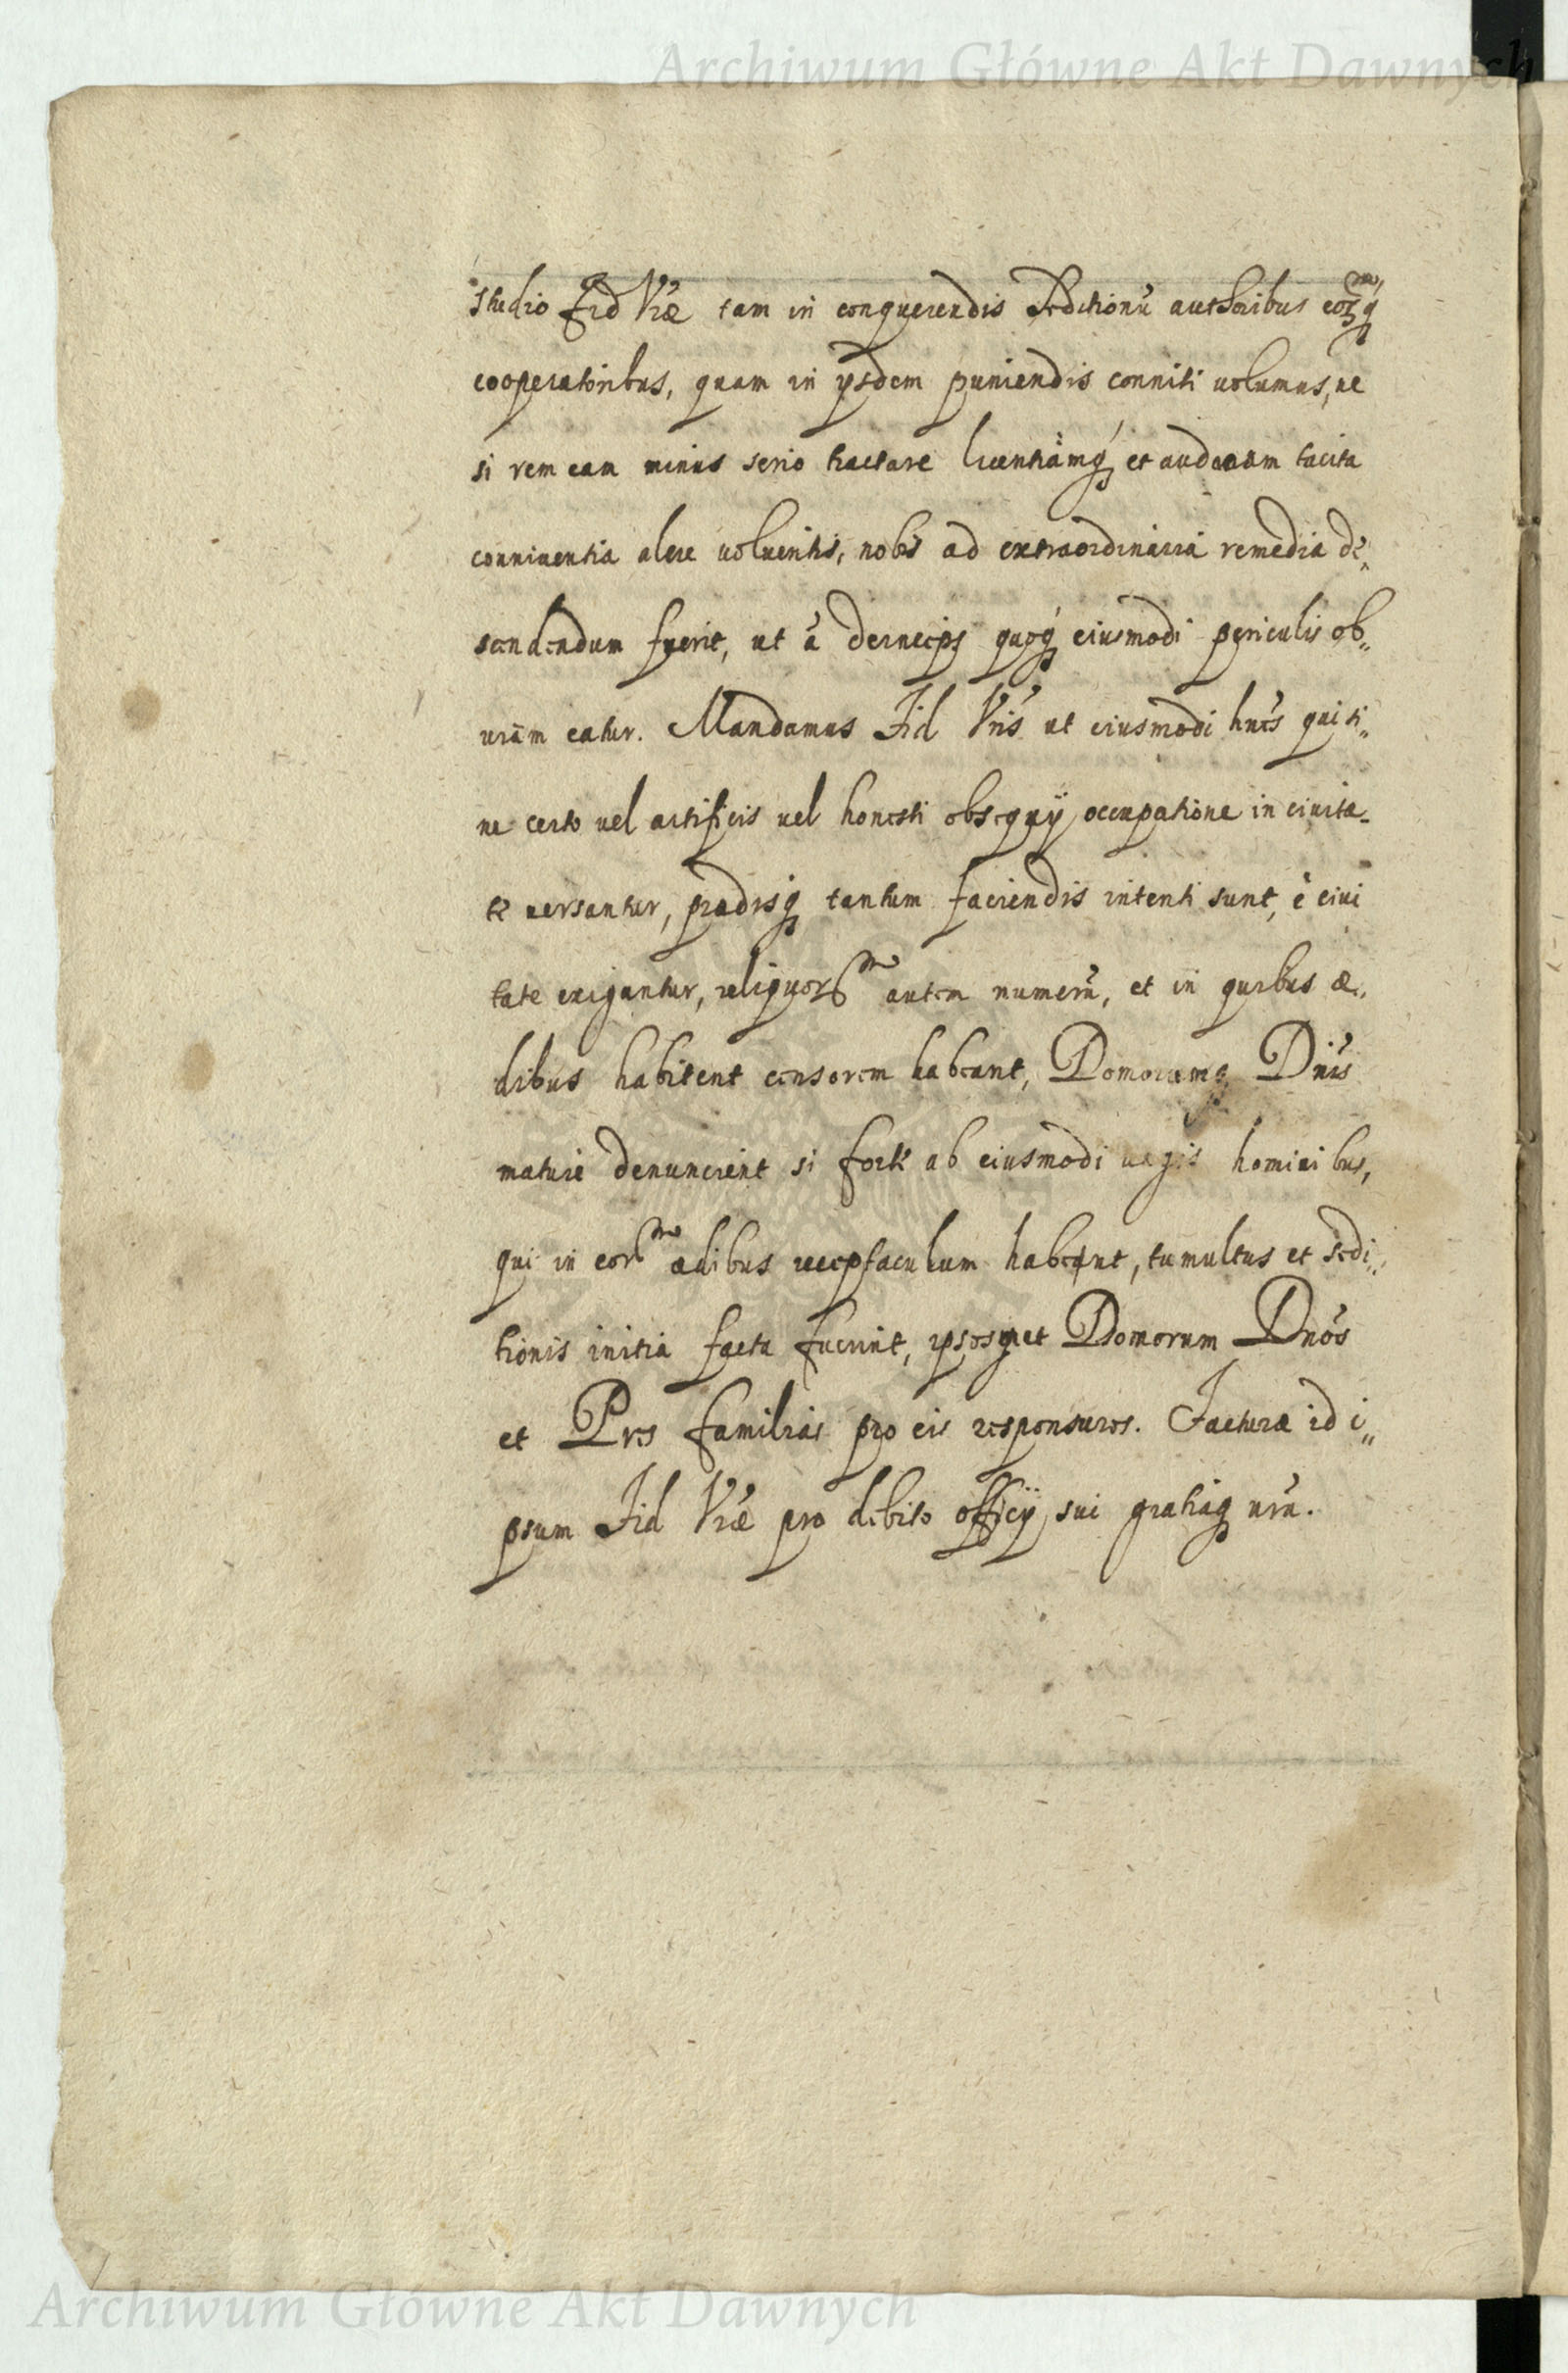 Archiwum Główne Akt Dawnych
studio Fid Vræ tam in conquerendis Seditionũ authoribus eorumq
cooperatoribus, quam in ysdem puniendis conniti volumus, ne
si rem eam minus serio tractare licentiamq́ et audaciam tacita
conniuentia alere volueritis, nobis ad extraordinaria remedia de„
scendendum fuerit, ut à deinceps quoq́ eiusmodi periculis ob„
uiam eatur. Mandamus Fid Vris ut eiusmodi hnes qui si„
ne certo vel artificis vel honesti obsequÿ occupatione in ciuita-
te uersantur, prædisq tantum faciendis intenti sunt, è ciui
tate exigantur, reliquorum autem numerũ, et in quibus æ„
dibus habitent censorem habeant, Domorumq Dnis
mature denuncient si forte ab eiusmodi vagis hominibus,
qui in eorum ædibus receptaculum habeant, tumultus et sedi„
tionis initia facta fuerint, ipsosmet Domorum Dnos
et Pres familias pro eis responsuros. Facturæ id i„
psum Fid Vræ pro debito officÿ sui gratiaq nrã.
Archiwum Główne Akt Dawnych